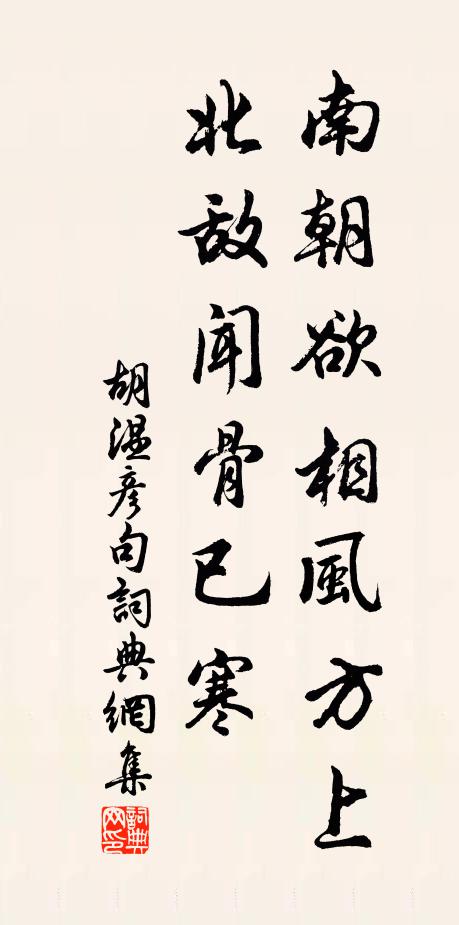 南朝欲相風方上
北敌闻骨已寒
胡温彦句詞典網集
詞典
网印